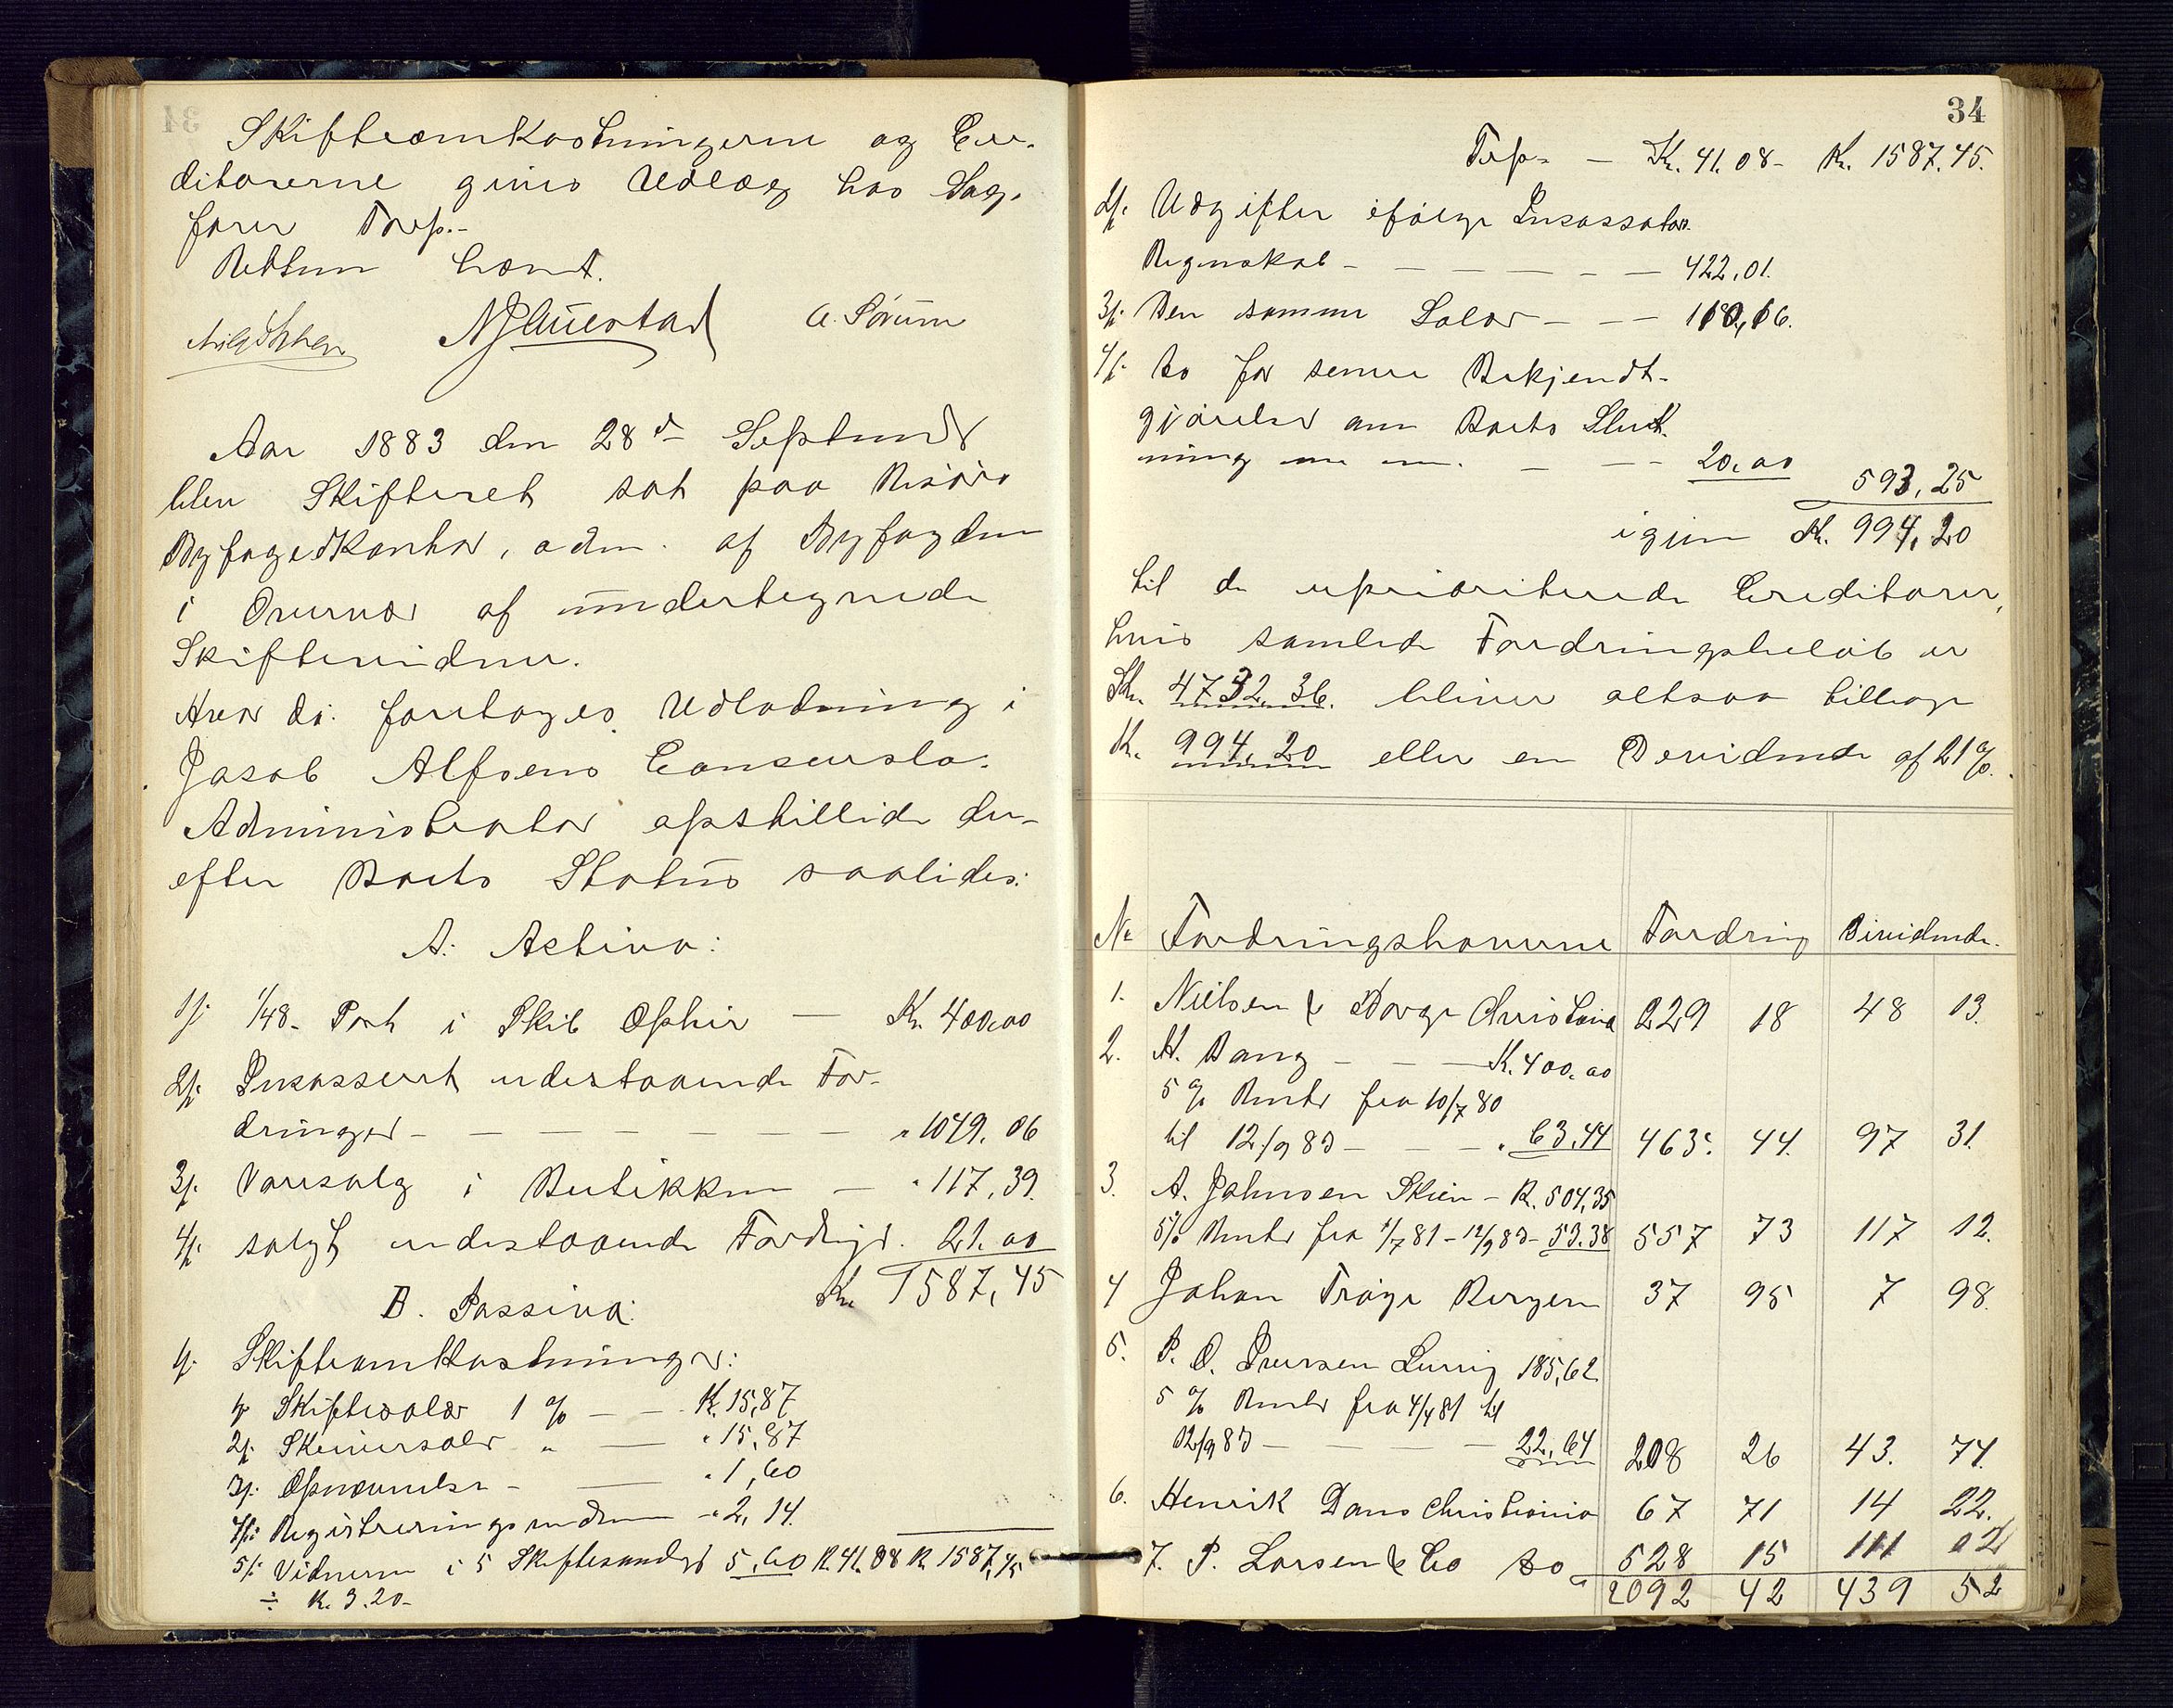 Skifteomkostningerne og Cre-
ditorerne gives Udlæg hos Sag-
fører Torp.-
Retten hævet.
NJLauestad A. Sørum
Aar 1883 den 28de September
blev Skifteret sat paa Risørs
Byfogedkontor, adm. af Byfogden
i Overvær af undertegnede
Skiftevidner.
Hvor da foretoges Udlodning i
Jacob Alfsens Concursbo.
Administrator opstillede der-
efter Boets Status saaledes:
A. Activa:
1/: 1/48- Part i Skib Ophir — Kr. 400.00
2/: Incasseret udestaaende For-
dringer - — — — — — " 1049.06
3/: Varesalg i Butikken — " 117,39.
4/: solgt udestaaende Fordringer. 21.00
Kr 1587,45
B. Passiva:
1/: Skifteomkostninger:
1/: Skiftesalær 1 % — - K. 15,87
2/: Skriversalær " — " 15,87
3/: Opnævnelse - — " 1,60
4/: Registreringsmændene - " 2,14.
5/: Vidnerne i 5 Skiftesamlgr 5,60 K. 41.08 K. 1587,45
÷ K. 3.20-
34
Trsp. — K. 41.08 - Kr. 1587.45.
2/: Udgifter ifølge Incassators
Regnskab - — — — — - — 422,01.
3/: Den samme Salær - — — 110,16.
4/: Do for senere Bekjendt-
gjørelse om Boets Slut-
ning m m. — — - 20.00
593,25
igjen Kr. 994,20
til de uprioriterede Creditorer,
hvis samlede Fordringsbeløb er
Kr. 4732,36. bliver altsaa tillags
Kr. 994,20 eller en Devidende af 21%.
No Fordringshaverne Fordring Dividende.
1. Nielsen & Borge Christania 229 18 48 13.
2. H. Bang - — — K. 400.00
5 % Renter fra 10/7 80
til 12/9 83 — - — " 63,44 463. 44. 97 31.
3. A. Johnsen Skien - K. 504,35
5% Renter fra 1/7 81 - 12/9 83 - 53.38 557 73 117 12.
4 Johan Trøye Bergen 37 95 7 98.
5. P. O. Iversen Lurvig 185,62
5 % Renter fra 4/4 81 til
12/9 83 — — — — 22,64 208 26 43. 74.
6. Henrik Dans Christiania 67 71 14 22.
7. P. Larsen & Co Do 528 15 111 02
2092 42 439 52